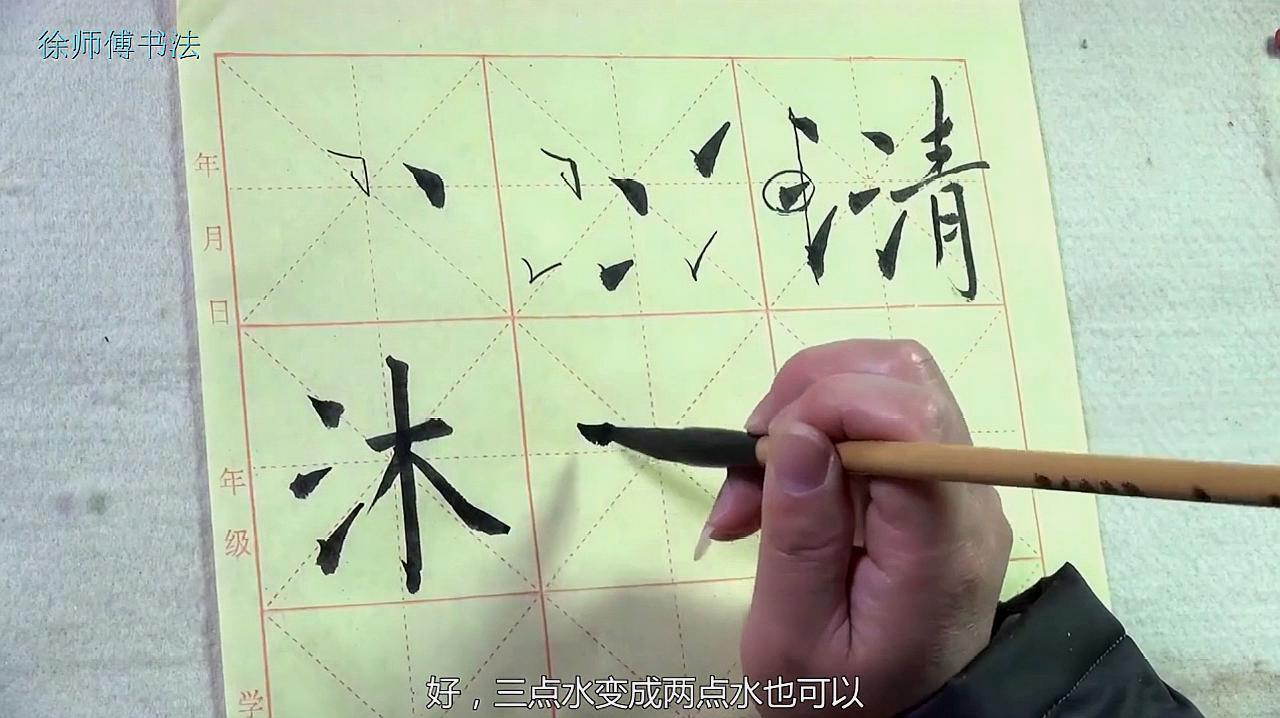 徐师傅书法
清
年
月
日
沐
年
级
学
好，三点水变成两点水也可以